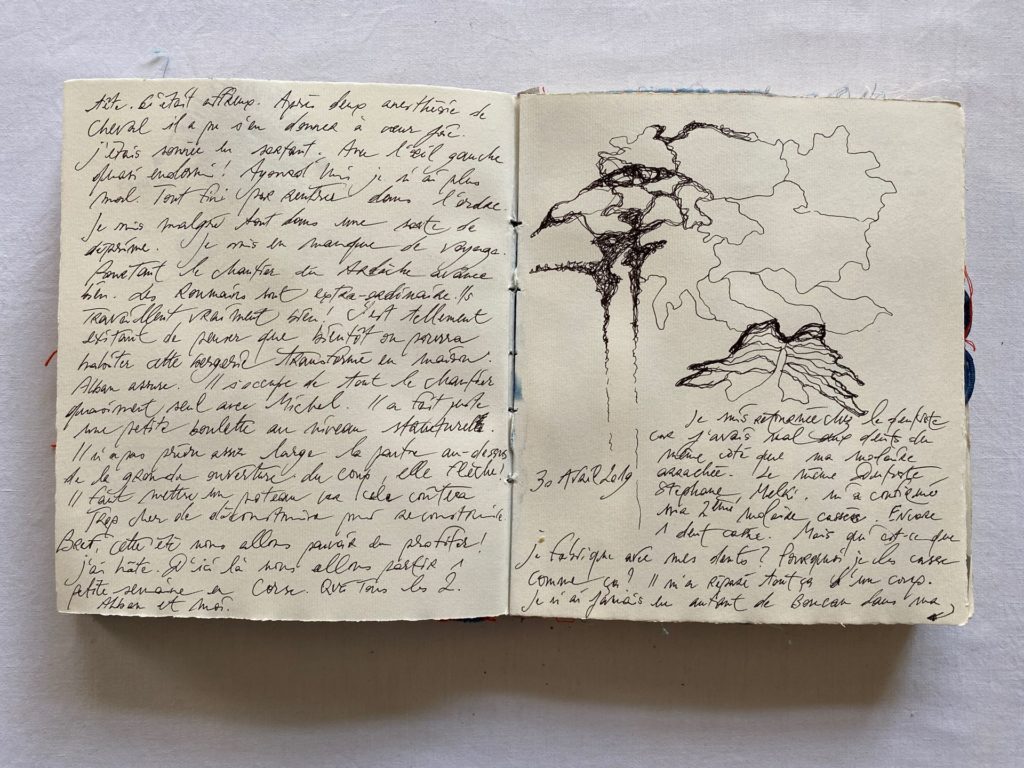 tête. C'était affreux. Après deux anesthésie de
cheval il a pu s'en donner à cœur joie.
j'étais sonnée en sortant. Avec l'œil gauche
quasi endormi! Aujourd'hui je n'ai plus
mal. Tout fini par rentrer dans l'ordre.
Je suis malgré tout dans une sorte de
déprime. Je suis en manque de voyage.
Pourtant le chantier en Ardèche avance
bien. Les Roumains sont extra-ordinaire. Ils
travaillent vraiment bien! C'est tellement
exitant de penser que bientôt on pourra
habiter cette bergerie transformé en maison.
Alban assure. Il s'occupe de tout le chantier
quasiment seul avec Michel. Il a fait juste
une petite boulette au niveau structurelle.
Il n'a pas prévu assez large la poutre au-dessus
de la grande ouverture du coup elle flèche!
Il faut mettre un poteau car cela coûtera
trop cher de déconstruire pour reconstruire.
Bref, cette été nous allons pouvoir en profiter!
j'ai hâte. D'ici là nous allons partir 1
petite semaine en Corse. Que tous les 2.
Alban et moi.
30 Avril 2019
Je suis retournée chez le dentiste
car j'avais mal aux dents du
même côté que ma molaire
arrachée. Le même dentiste
Stéphane Melki. m'a confirmé
ma 2ème molaire cassée. Encore
1 dent cassé. Mais qu'est-ce que
je fabrique avec mes dents? Pourquoi je les casse
comme ça? Il m'a réparé tout ça d'un coup.
Je n'ai jamais eu autant de boucan dans ma